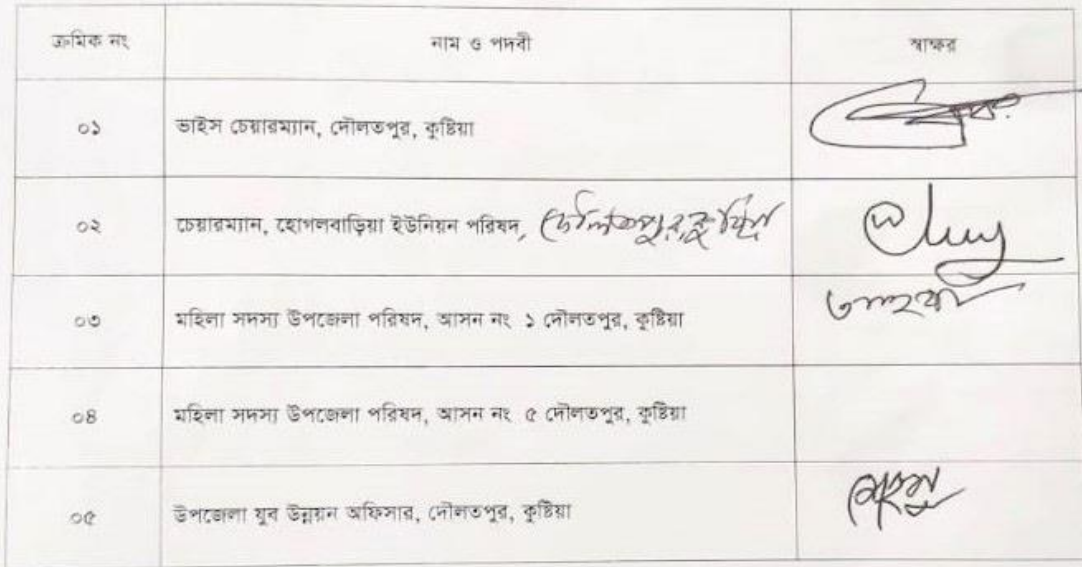 ক্রমিক নং নাম ও পদবী স্বাক্ষর
০১ ভাইস চেয়ারম্যান, দৌলতপুর, কুষ্টিয়া
০২ চেয়ারম্যান, হোগলবাড়িয়া ইউনিয়ন পরিষদ, দৌলতপুর, কুষ্টিয়া
০৩ মহিলা সদস্য উপজেলা পরিষদ, আসন নং ১ দৌলতপুর, কুষ্টিয়া
০৪ মহিলা সদস্য উপজেলা পরিষদ, আসন নং ৫ দৌলতপুর, কুষ্টিয়া
০৫ উপজেলা যুব উন্নয়ন অফিসার, দৌলতপুর, কুষ্টিয়া